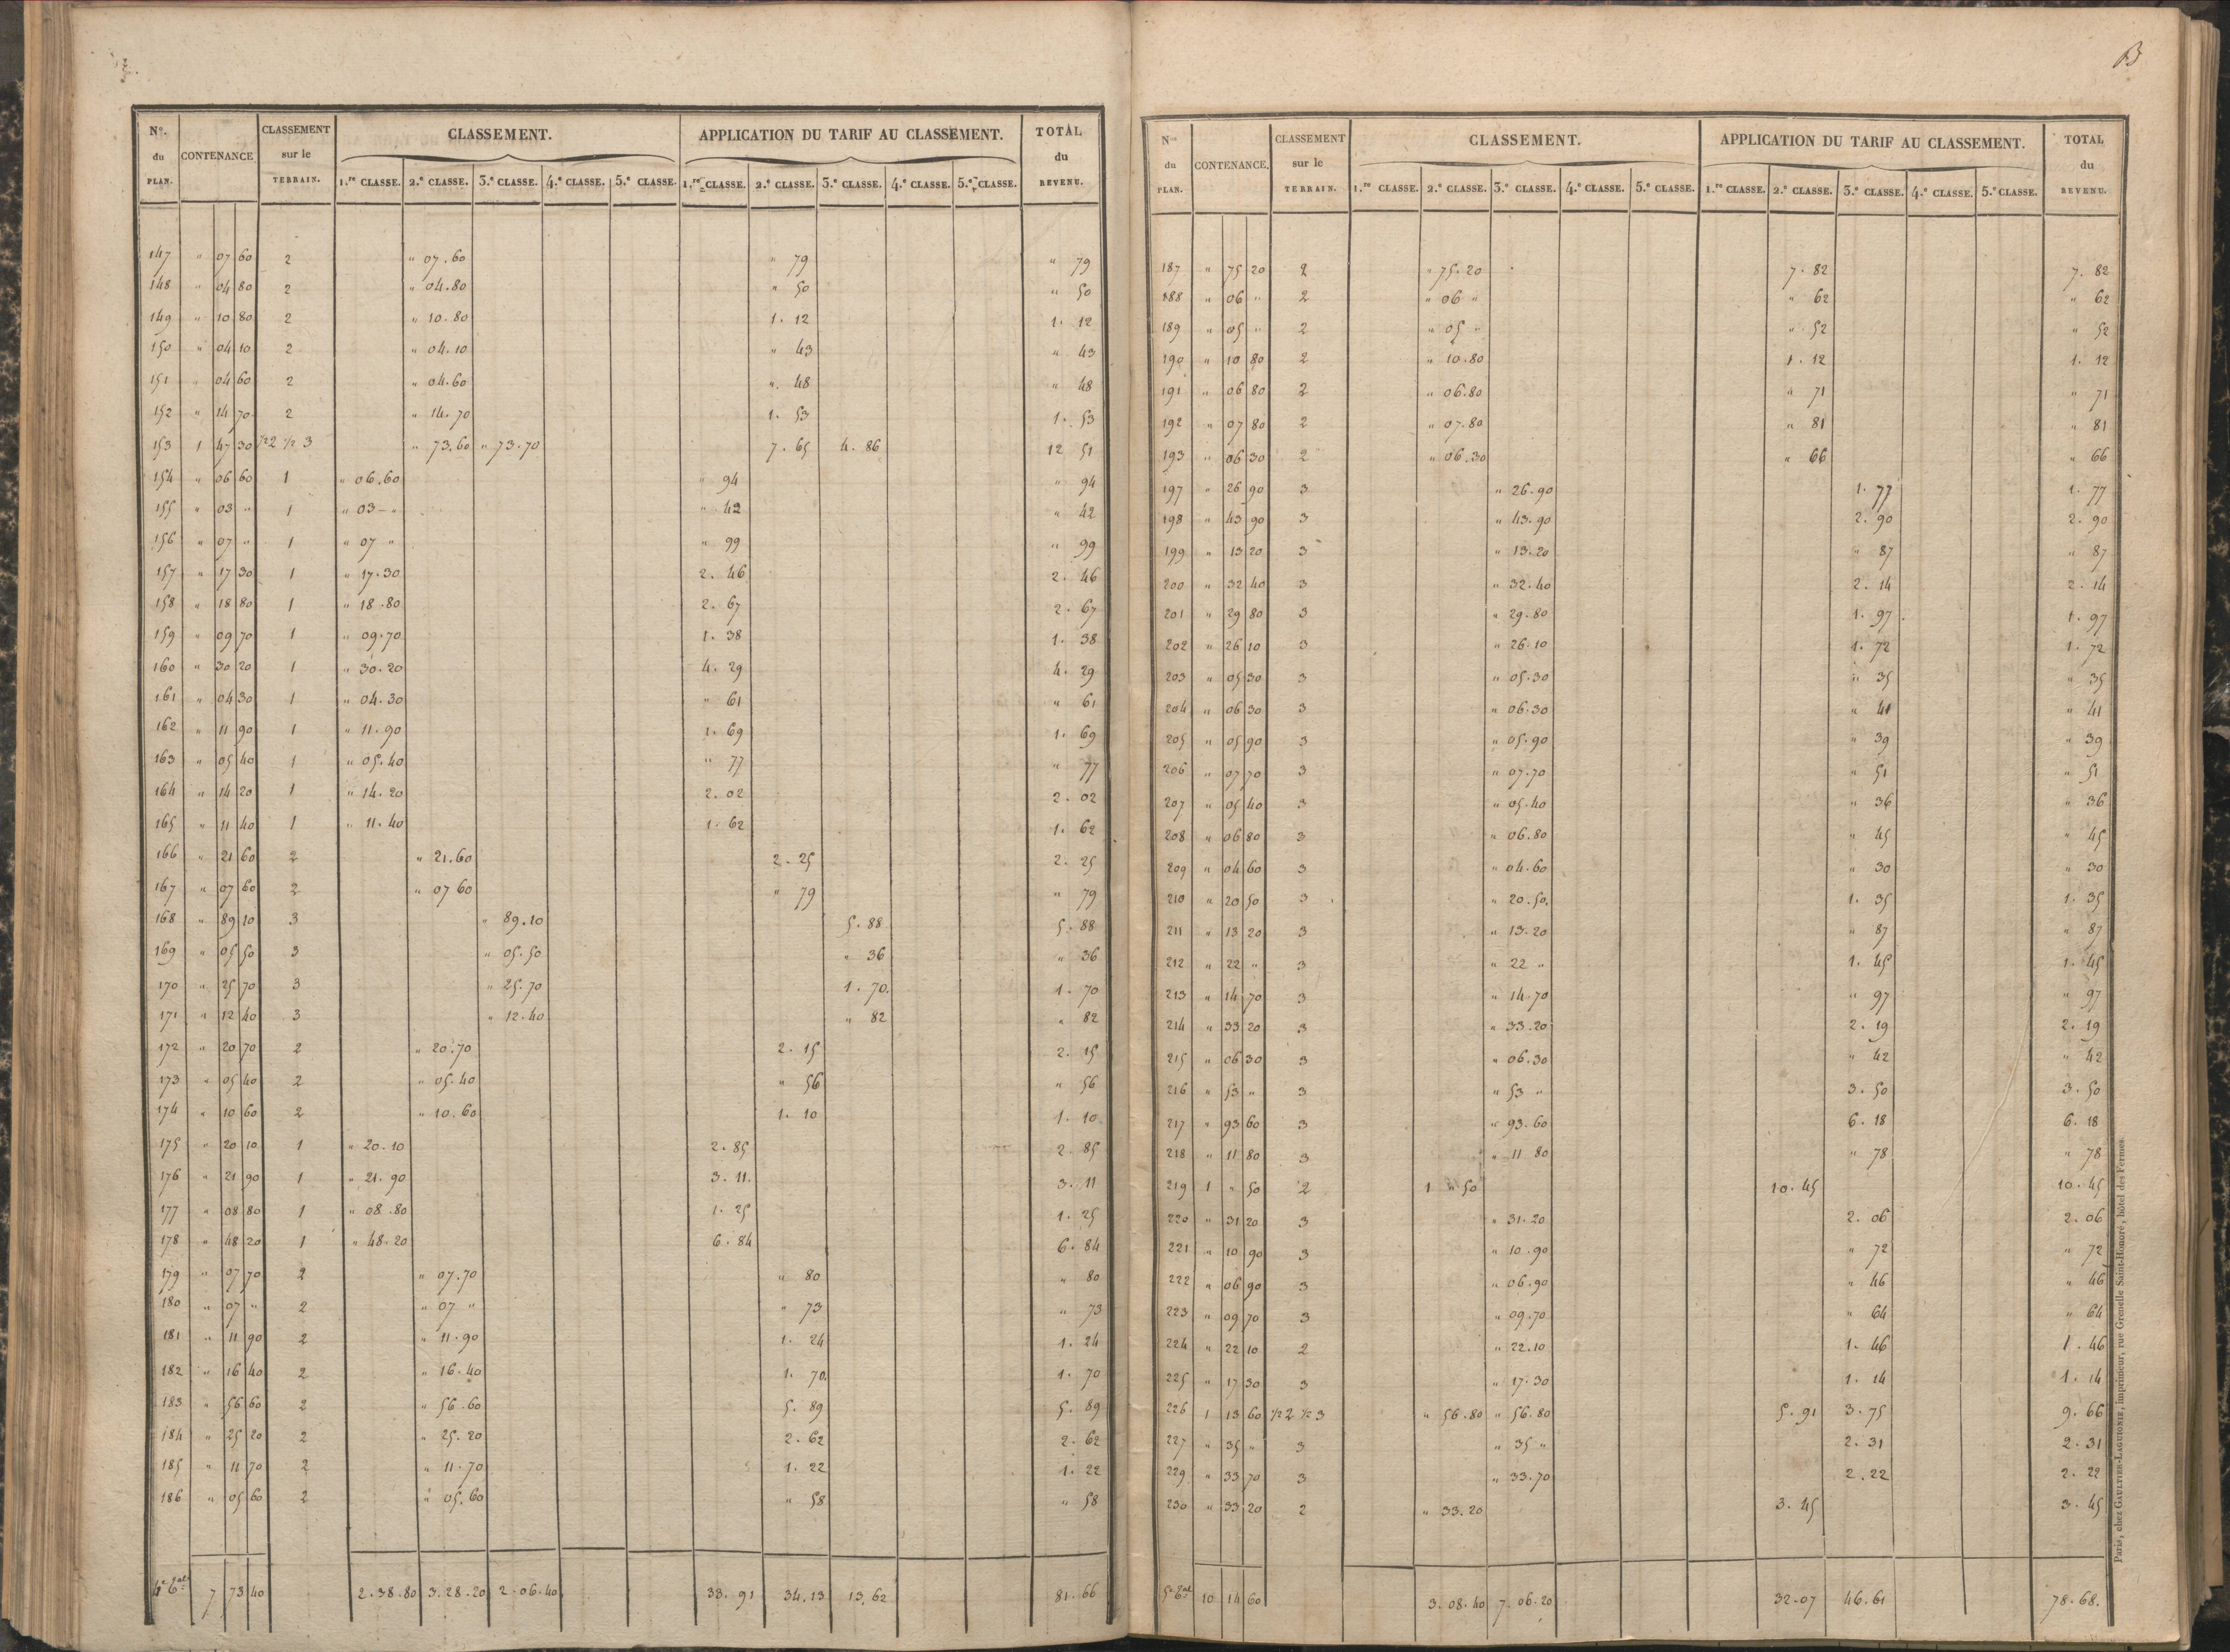 N.º du PLAN. CONTENANCE CLASSEMENT sur le TERRAIN. CLASSEMENT. APPLICATION DU TARIF AU CLASSEMENT. TOTAL du REVENU.
1.re CLASSE. 2.e CLASSE. 3.e CLASSE. 4.e CLASSE. 5.e CLASSE. 1.re CLASSE. 2.e CLASSE. 3.e CLASSE. 4.e CLASSE. 5.e CLASSE.
147 " 07 60 2 " 07.60 " 79 " 79
148 " 04 80 2 " 04.80 " 50 " 50
149 " 10 80 2 " 10.80 1. 12 1. 12
150 " 04 10 2 " 04.10 " 43 " 43
151 " 04 60 2 " 04.60 " 48 " 48
152 " 14 70 2 " 14.70 1. 53 1. 53
153 1 47 30 1/2 2 1/2 3 " 73.60 " 73.70 7. 65 4. 86 12 51
154 " 06 60 1 " 06.60 " 94 " 94
155 " 03 " 1 " 03 - " " 42 " 42
156 " 07 " 1 " 07 " " 99 " 99
157 " 17 30 1 " 17.30 2. 46 2. 46
158 " 18 80 1 " 18.80 2. 67 2. 67
159 " 09 70 1 " 09.70 1. 38 1. 38
160 " 30 20 1 " 30.20 4. 29 4. 29
161 " 04 30 1 " 04.30 " 61 " 61
162 " 11 90 1 " 11.90 1. 69 1. 69
163 " 05 40 1 " 05.40 " 77 " 77
164 " 14 20 1 " 14.20 2. 02 2. 02
165 " 11 40 1 " 11.40 1. 62 1. 62
166 " 21 60 2 " 21.60 2. 25 2. 25
167 " 07 60 2 " 07 60 " 79 " 79
168 " 89 10 3 " 89.10 5. 88 5. 88
169 " 05 50 3 " 05.50 " 36 " 36
170 " 25 70 3 " 25.70 1. 70. 1. 70
171 " 12 40 3 " 12.40 " 82 " 82
172 " 20 70 2 " 20.70 2. 15 2. 15
173 " 05 40 2 " 05.40 " 56 " 56
174 " 10 60 2 " 10.60 1. 10 1. 10
175 " 20 10 1 " 20.10 2. 85 2. 85
176 " 21 90 1 " 21.90 3. 11. 3. 11
177 " 08 80 1 " 08.80 1. 25 1. 25
178 " 48 20 1 " 48.20 6. 84 6. 84
179 " 07 70 2 " 07.70 " 80 " 80
180 " 07 " 2 " 07 " " 73 " 73
181 " 11 90 2 " 11.90 1. 24 1. 24
182 " 16 40 2 " 16.40 1. 70. 1. 70
183 " 56 60 2 " 56.60 5. 89 5. 89
184 " 25 20 2 " 25.20 2. 62 2. 62
185 " 11 70 2 " 11.70 1. 22 1. 22
186 " 05 60 2 " 05.60 " 58 " 58
7 73 40 2.38.80 3.28.20 2.06.40 33. 91 34.13 13.62 81.66
N.os du PLAN. CONTENANCE. CLASSEMENT sur le TERRAIN. CLASSEMENT. APPLICATION DU TARIF AU CLASSEMENT. TOTAL du REVENU.
1.re CLASSE. 2.e CLASSE. 3.e CLASSE. 4.e CLASSE. 5.e CLASSE. 1.re CLASSE. 2.e CLASSE. 3.e CLASSE. 4.e CLASSE. 5.e CLASSE.
187 " 75 20 2 " 75.20 7. 82 7. 82
188 " 06 " 2 " 06 " " 62 " 62
189 " 05 " 2 " 05 " " 52 " 52
190 " 10 80 2 " 10.80 1. 12 1. 12
191 " 06 80 2 " 06.80 " 71 " 71
192 " 07 80 2 " 07.80 " 81 " 81
193 " 06 30 2 " 06.30 " 66 " 66
197 " 26 90 3 " 26.90 1. 77 1. 77
198 " 43 90 3 " 43.90 2. 90 2. 90
199 " 13 20 3 " 13.20 " 87 " 87
200 " 32 40 3 " 32.40 2. 14 2. 14
201 " 29 80 3 " 29.80 1. 97 1. 97
202 " 26 10 3 " 26.10 1. 72 1. 72
203 " 05 30 3 " 05.30 " 35 " 35
204 " 06 30 3 " 06.30 " 41 " 41
205 " 05 90 3 " 05.90 " 39 " 39
206 " 07 70 3 " 07.70 " 51 " 51
207 " 05 40 3 " 05.40 " 36 " 36
208 " 06 80 3 " 06.80 " 45 " 45
209 " 04 60 3 " 04.60 " 30 " 30
210 " 20 50 3 " 20.50. 1. 35 1. 35
211 " 13 20 3 " 13.20 " 87 " 87
212 " 22 " 3 " 22 " 1. 45 1. 45
213 " 14 70 3 " 14.70 " 97 " 97
214 " 33 20 3 " 33.20 2. 19 2. 19
215 " 06 30 3 " 06.30 " 42 " 42
216 " 53 " 3 " 53 " 3. 50 3. 50
217 " 93 60 3 " 93.60 6. 18 6. 18
218 " 11 80 3 " 11 80 " 78 " 78
219 1 " 50 2 1 " 50 10. 45 10. 45
220 " 31 20 3 " 31.20 2. 06 2. 06
221 " 10 90 3 " 10.90 " 72 " 72
222 " 06 90 3 " 06.90 " 46 " 46
223 " 09 70 3 " 09.70 " 64 " 64
224 " 22 10 2 " 22.10 1. 46 1. 46
225 " 17 30 3 " 17.30 1. 14 1. 14
226 1 13 60 1/2 2 1/2 3 " 56.80 " 56.80 5. 91 3. 75 9. 66
227 " 35 " 3 " 35 " 2. 31 2. 31
229 " 33 70 3 " 33.70 2. 22 2. 22
230 " 33 20 2 " 33.20 3. 45 3. 45
10 14 60 3. 08. 40 7. 06. 20 32.07 46.61 78.68.
Paris, chez GAULTIER-LAGUIONIE, imprimeur, rue Grenelle Saint-Honoré, hôtel des Fermes.